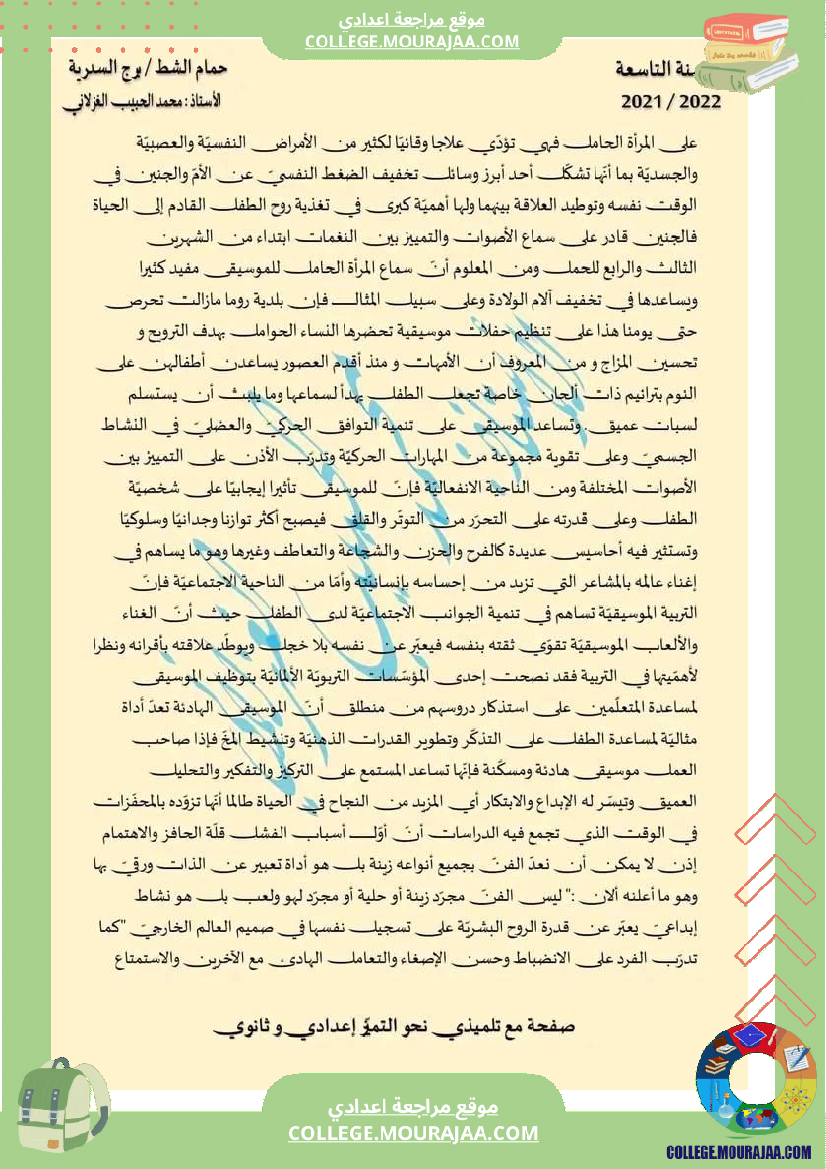 موقع مراجعة اعدادي
COLLEGE.MOURAJAA.COM
سنة التاسعة
حمام الشط / برج السدرية
2021 / 2022
الأستاذ : محمد الحبيب الغزلاني
على المرأة الحامل فهي تؤدّي علاجا وقائيّا لكثير من الأمراض النفسيّة والعصبيّة
والجسديّة بما أنّها تشكّل أحد أبرز وسائل تخفيف الضغط النفسيّ عن الأمّ والجنين في
الوقت نفسه وتوطيد العلاقة بينهما ولها أهميّة كبرى في تغذية روح الطفل القادم إلى الحياة
فالجنين قادر على سماع الأصوات والتمييز بين النغمات ابتداء من الشهرين
الثالث والرابع للحمل ومن المعلوم أنّ سماع المرأة الحامل للموسيقى مفيد كثيرا
ويساعدها في تخفيف آلام الولادة وعلى سبيل المثال فإن بلدية روما مازالت تحرص
حتى يومنا هذا على تنظيم حفلات موسيقية تحضرها النساء الحوامل بهدف الترويح و
تحسين المزاج و من المعروف أن الأمهات و منذ أقدم العصور يساعدن أطفالهن على
النوم بترانيم ذات ألحان خاصة تجعل الطفل يهدأ لسماعها وما يلبث أن يستسلم
لسبات عميق . وتساعد الموسيقى على تنمية التوافق الحركيّ والعضليّ في النشاط
الجسميّ وعلى تقوية مجموعة من المهارات الحركيّة وتدرّب الأذن على التمييز بين
الأصوات المختلفة ومن الناحية الانفعاليّة فإنّ للموسيقى تأثيرا إيجابيّا على شخصيّة
الطفل وعلى قدرته على التحرّر من التوتّر والقلق فيصبح أكثر توازنا وجدانيّا وسلوكيّا
وتستثير فيه أحاسيس عديدة كالفرح والحزن والشجاعة والتعاطف وغيرها وهو ما يساهم في
إغناء عالمه بالمشاعر التي تزيد من إحساسه بإنسانيّته وأمّا من الناحية الاجتماعيّة فإنّ
التربية الموسيقيّة تساهم في تنمية الجوانب الاجتماعيّة لدى الطفل حيث أنّ الغناء
والألعاب الموسيقيّة تقوّي ثقته بنفسه فيعبّر عن نفسه بلا خجل ويوطّد علاقته بأقرانه ونظرا
لأهمّيتها في التربية فقد نصحت إحدى المؤسّسات التربويّة الألمانيّة بتوظيف الموسيقى
لمساعدة المتعلّمين على استذكار دروسهم من منطلق أنّ الموسيقى الهادئة تعدّ أداة
مثاليّة لمساعدة الطفل على التذكّر وتطوير القدرات الذهنيّة وتنشيط المخّ فإذا صاحب
العمل موسيقى هادئة ومسكّنة فإنّها تساعد المستمع على التركيز والتفكير والتحليل
العميق وتيسّر له الإبداع والابتكار أي المزيد من النجاح في الحياة طالما أنّها تزوّده بالمحفّزات
في الوقت الذي تجمع فيه الدراسات أنّ أوّل أسباب الفشل قلّة الحافز والاهتمام
إذن لا يمكن أن نعدّ الفنّ بجميع أنواعه زينة بل هو أداة تعبير عن الذات ورقيّ بها
وهو ما أعلنه ألان :" ليس الفنّ مجرّد زينة أو حلية أو مجرّد لهو ولعب بل هو نشاط
إبداعيّ يعبّر عن قدرة الروح البشريّة على تسجيل نفسها في صميم العالم الخارجيّ "كما
تدرّب الفرد على الانضباط وحسن الإصغاء والتعامل الهادئ مع الآخرين والاستمتاع
صفحة مع تلميذي نحو التميّز إعدادي و ثانوي
موقع مراجعة اعدادي
COLLEGE.MOURAJAA.COM
COLLEGE.MOURAJAA.COM